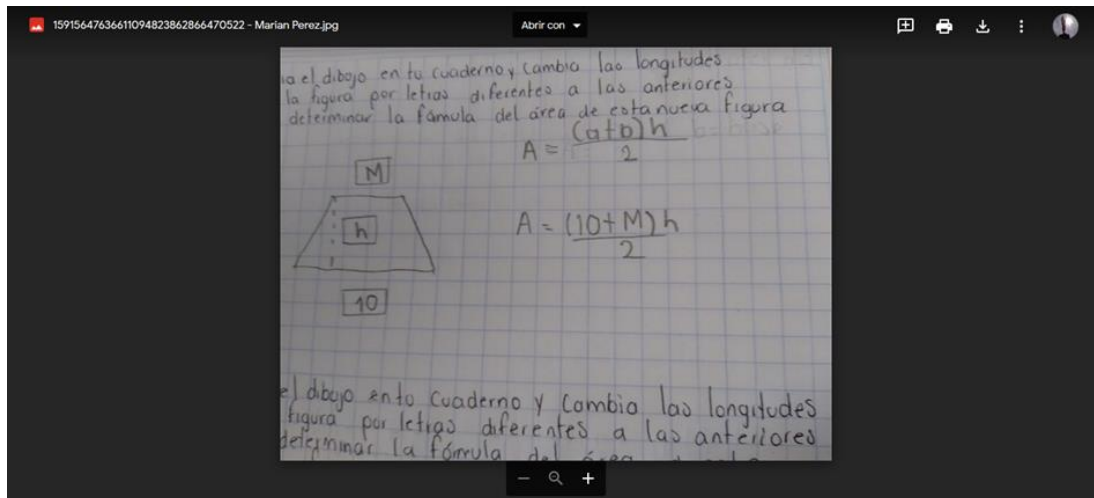 15915647636611094823862866470522 - Marian Perez.jpg
Abrir con
ia el dibojo en tu cuaderno y Cambia las longitudes
la figura por letras diferentes a las anteriores
determinar la fámula del área de esta nueva figura
A = (a+b)h
2
M
h
A = (10+M)h
2
10
el dibujo en to cuaderno y Cambia las longitudes
figura por letras diferentes a las anteriores
determinar la fórmula del